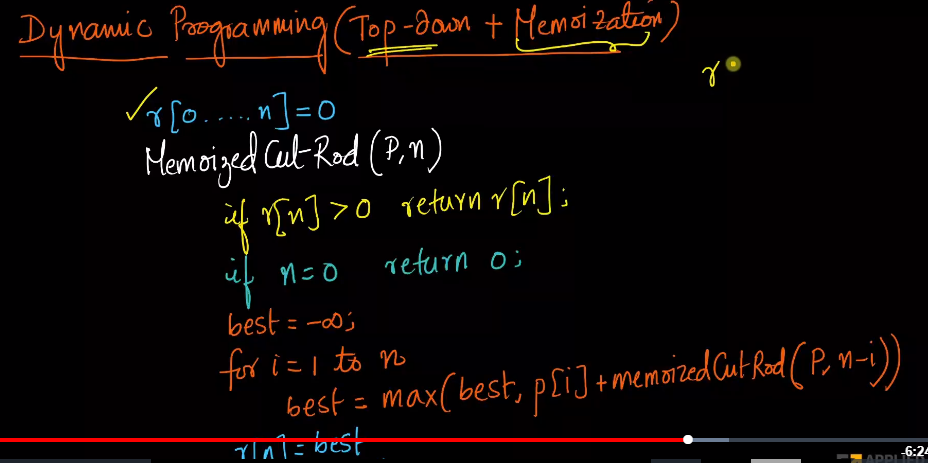 Dynamic Programming (Top-down + Memoization)
r
r[0.....n]=0
Memoized Cut-Rod (P,n)
if r[n] > 0 return r[n];
if n=0 return 0;
best = -∞;
for i = 1 to n
best = max(best, p[i]+memoizedCutRod(P, n-i))
r[n]=best
-6:24
APPLIED